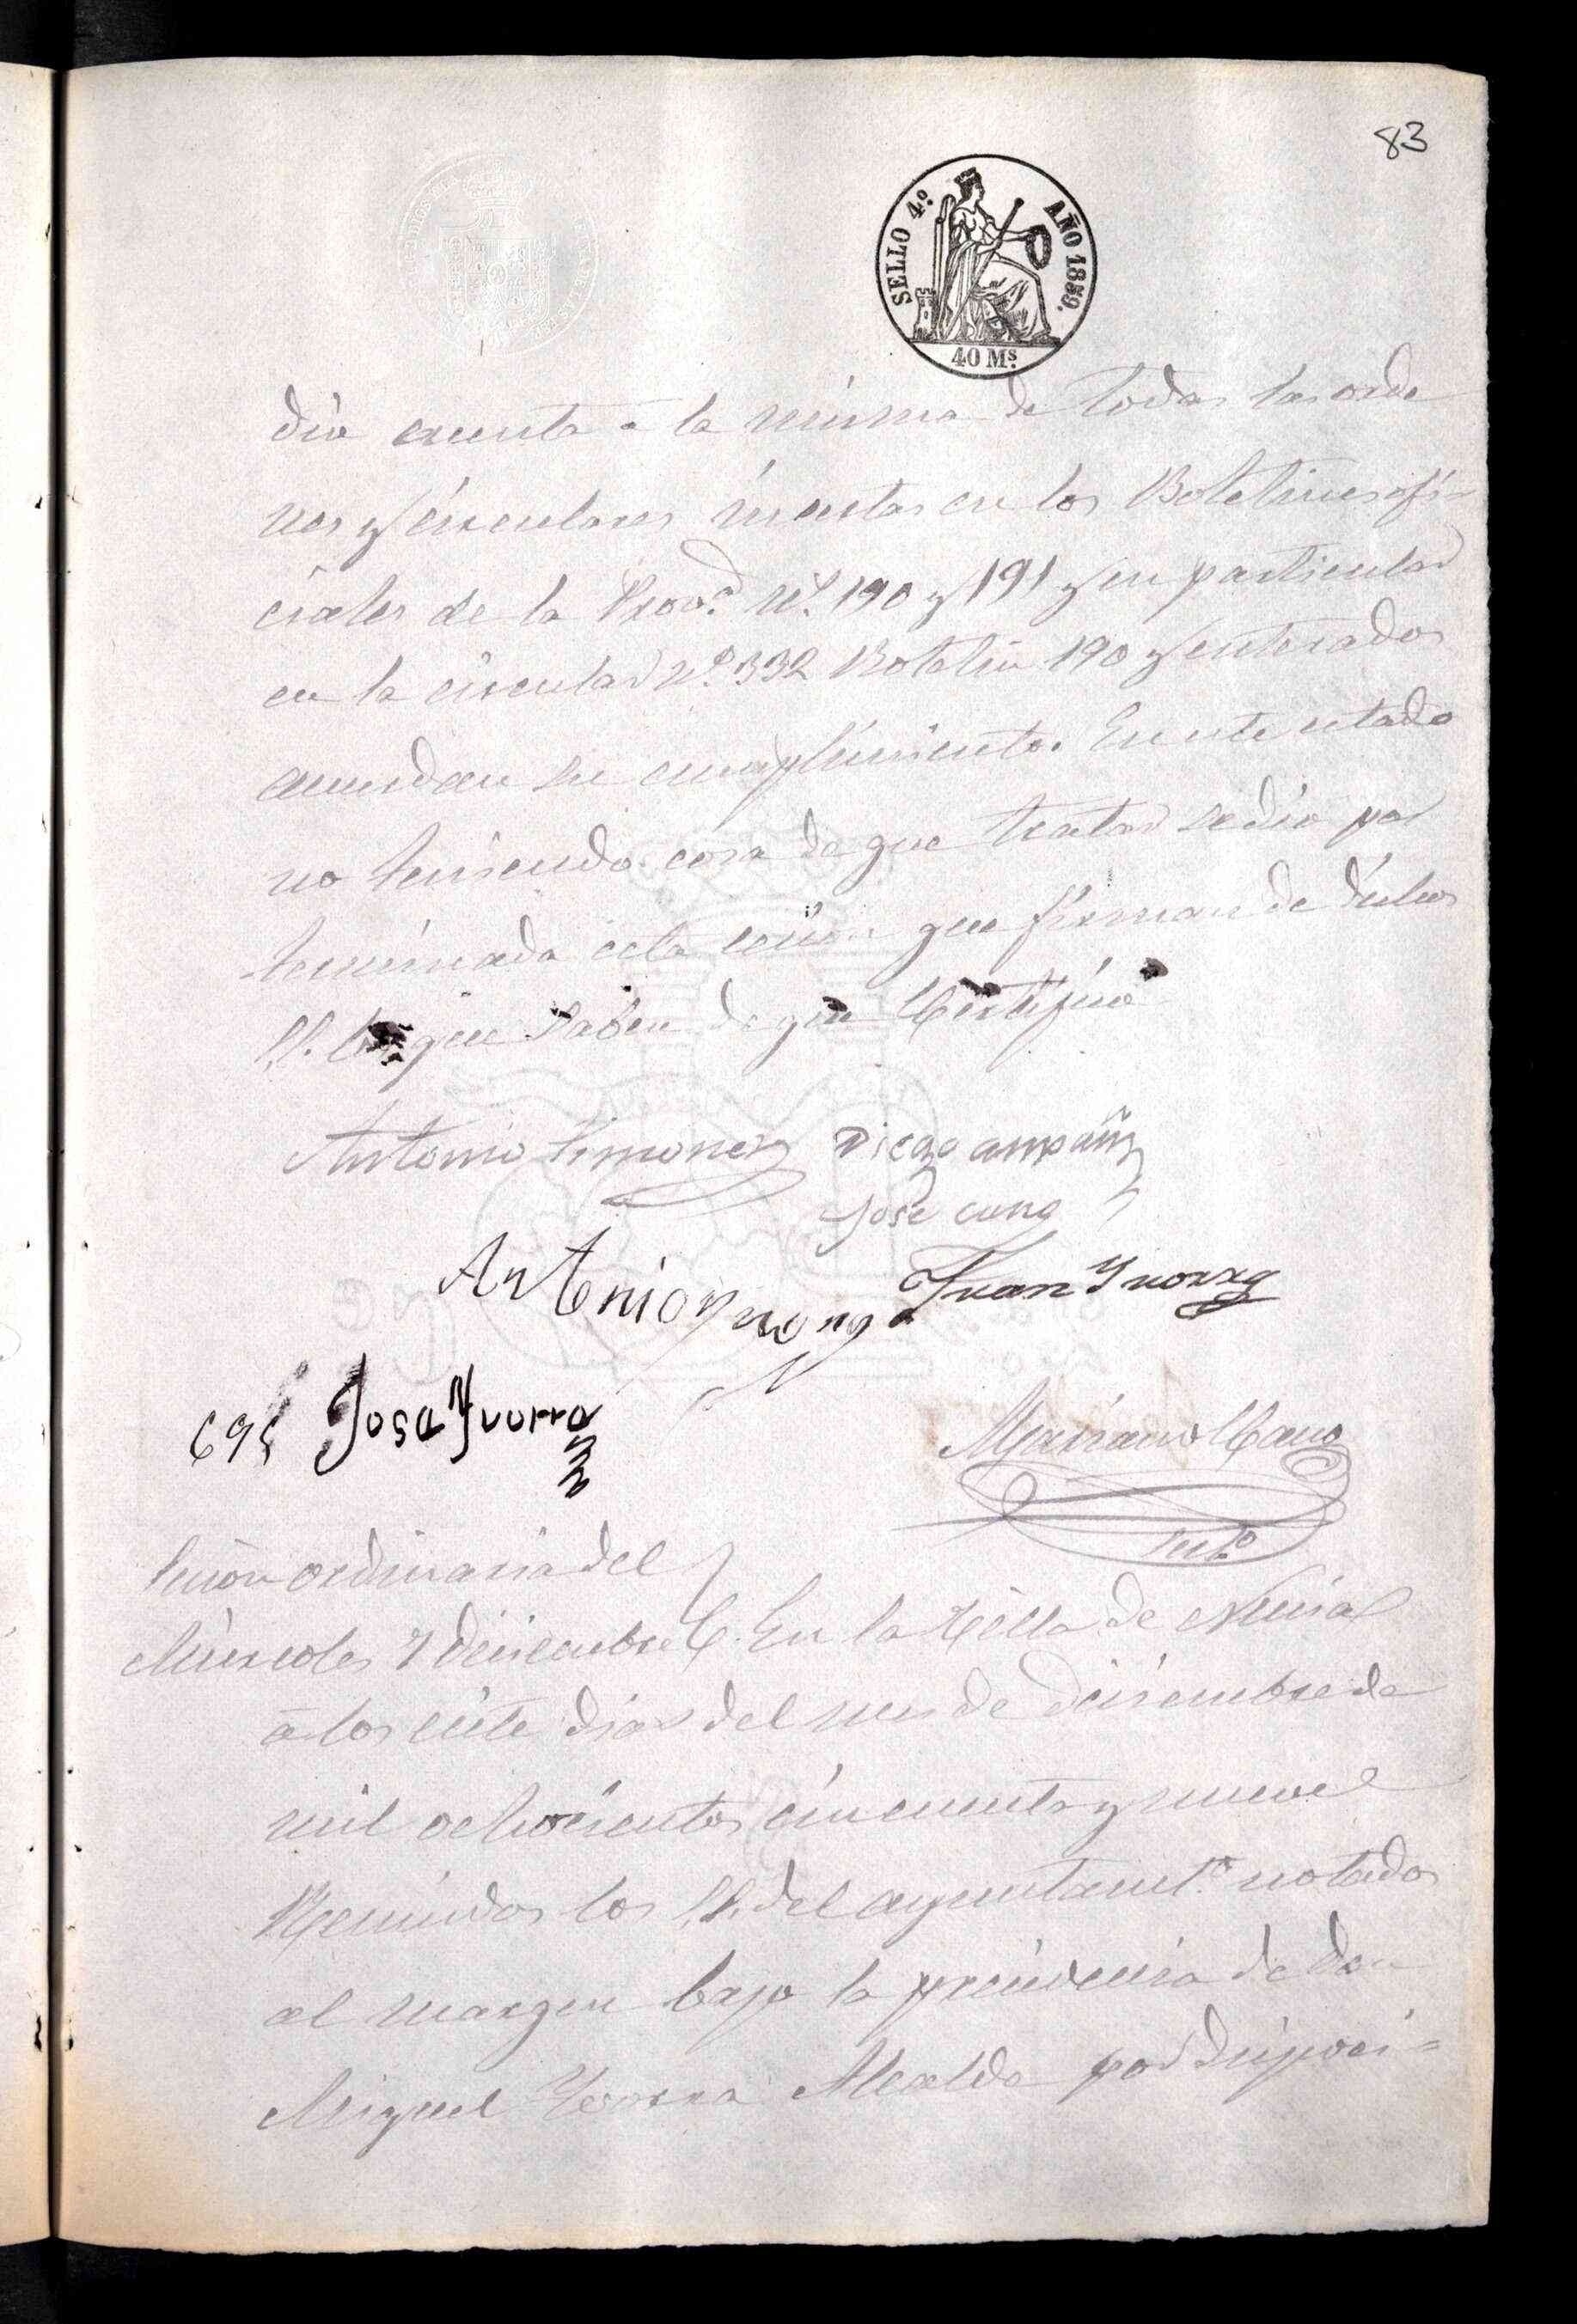 83
SELLO 4.º AÑO 1859.
40 Ms.
dio cuenta a la misma de todas las orde
nes y circulares insertas en los Boletines ofi-
ciales de la Prov.ª N.s 190 y 191 y en particular
en la circular N.º 332 Boletin 190 y enterados
acuerdan su cumplimiento. En este estado
no teniendo cosa de que tratar se dio por
terminada esta cecion que firman de dichos
S.S. los que saben de que Certifico
Antonio Ximenez Diego
Jose cano
Antonio Juan Yvorra
695 Jose Yvorra
Mariano Cano
Sect.º
Secion ordinaria del
Miercoles 7 diciembre En la Villa de Nucia
a los ciete dias del mes de diciembre de
mil ochocientos cincuenta y nueve
Reunidos los S.S. del ayuntamt.º notados
al margen bajo la precidencia de Don
Miguel Yvorra Alcalde por dispoci-